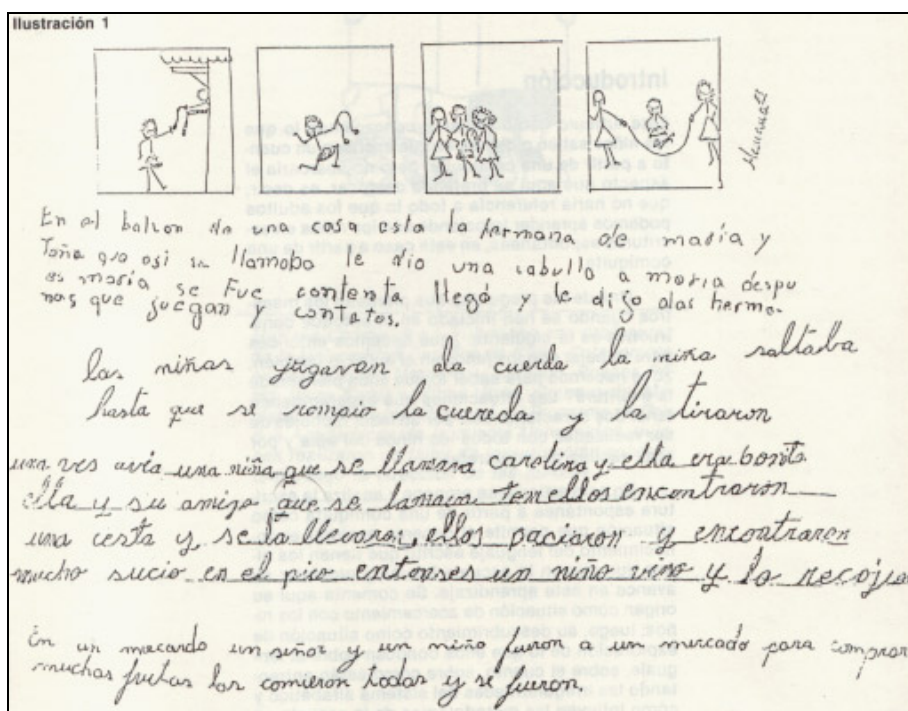 Ilustración 1
En el balcon de una casa esta la hermana de maria y
Toña que asi se llamaba le dio una cabulla a maria despu
es maria se Fue contenta llegó y le dijo alas herma-
nas que juegan y contatos.
las niñas jugavan ala cuerda la niña saltaba
hasta que se rompio la cuereda y la tiraron
una ves avia una niña que se llamava carolina y ella era bonita
ella y su amigo que se lamava Tom ellos encontraron
una cesta y se la llevaron, ellos paciaron y encontraron
mucho sucio en el pico entonses un niño vino y lo recojio
En un mercardo un señor y un niño fueron a un mercado para comprar
muchas frutas las comieron todas y se fueron.